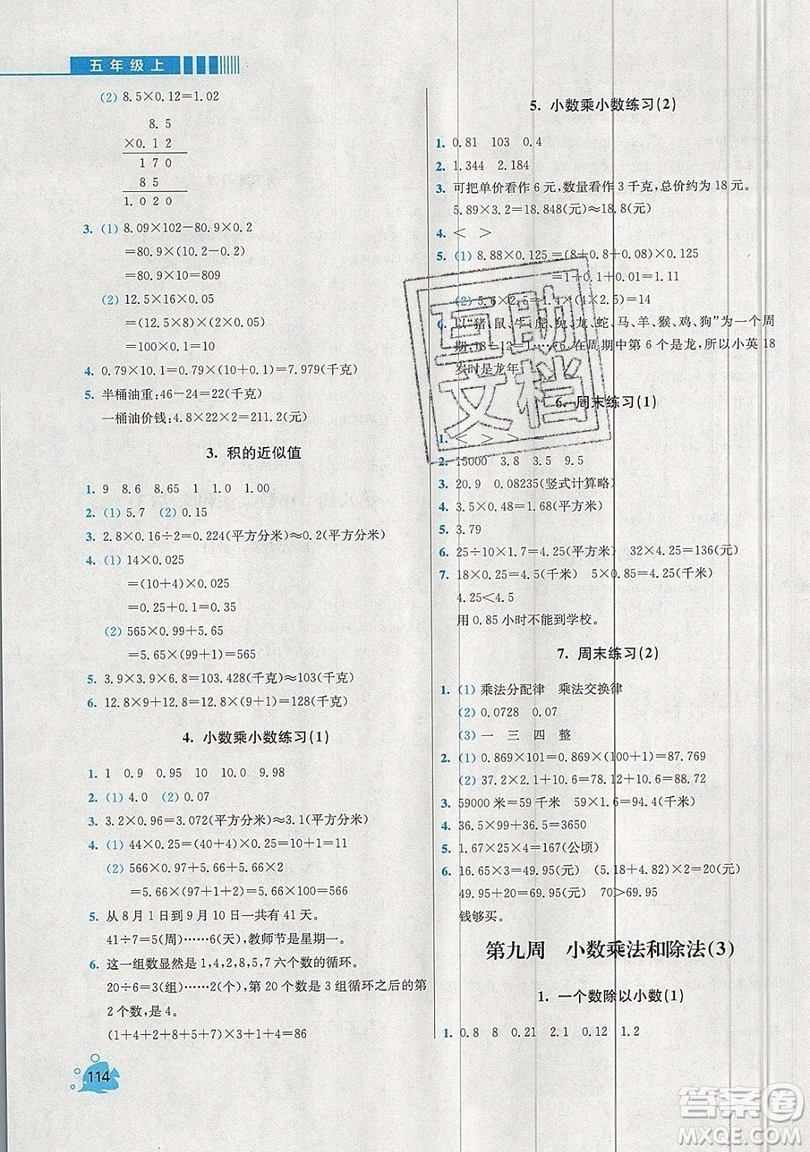 五年级上
(2) 8.5×0.12=1.02
8.5
×0.12
170
85
1.020
3. (1) 8.09×102-80.9×0.2
=80.9×(10.2-0.2)
=80.9×10=809
(2) 12.5×16×0.05
=(12.5×8)×(2×0.05)
=100×0.1=10
4. 0.79×10.1=0.79×(10+0.1)=7.979(千克)
5. 半桶油重:46-24=22(千克)
一桶油价钱:4.8×22×2=211.2(元)
3. 积的近似值
1. 9 8.6 8.65 1 1.0 1.00
2. (1) 5.7 (2) 0.15
3. 2.8×0.16÷2=0.224(平方分米)≈0.2(平方分米)
4. (1) 14×0.025
=(10+4)×0.025
=0.25+0.1=0.35
(2) 565×0.99+5.65
=5.65×(99+1)=565
5. 3.9×3.9×6.8=103.428(千克)≈103(千克)
6. 12.8×9+12.8=12.8×(9+1)=128(元)
4. 小数乘小数练习(1)
1. 1 0.9 0.95 10 10.0 9.98
2. (1) 4.0 (2) 0.07
3. 3.2×0.96=3.072(平方分米)≈3.1(平方分米)
4. (1) 44×0.25=(40+4)×0.25=10+1=11
(2) 566×0.97+5.66+5.66×2
=5.66×(97+1+2)=5.66×100=566
5. 从8月1日到9月10日一共有41天。
41÷7=5(周)……6(天),教师节是星期一。
6. 这一组数显然是1,4,2,8,5,7六个数的循环。
20÷6=3(组)……2(个),第20个数是3组循环之后的第
2个数,是4。
(1+4+2+8+5+7)×3+1+4=86
114
5. 小数乘小数练习(2)
1. 0.81 103 0.4
2. 1.344 2.184
3. 可把单价看作6元,数量看作3千克,总价约为18元。
5.89×3.2=18.848(元)≈18.8(元)
4. < >
5. (1) 8.88×0.125=(8+0.8+0.08)×0.125
=1+0.1+0.01=1.11
(2) 5.6×2.5=1.4×(4×2.5)=1.4×10=14
6. 以“猪、鼠、牛、虎、兔、龙、蛇、马、羊、猴、鸡、狗”为一个周
期,18÷12=1……6。在周期中第6个是龙,所以小英18
岁时是龙年。
互助
文档
6. 周末练习(1)
1. < > > <
2. 15000 3.8 3.5 9.5
3. 20.9 0.08235(竖式计算略)
4. 3.5×0.48=1.68(平方米)
5. 3.79
6. 25÷10×1.7=4.25(平方米) 32×4.25=136(元)
7. 18×0.25=4.5(千米) 5×0.85=4.25(千米)
4.25<4.5
用0.85小时不能到学校。
7. 周末练习(2)
1. (1) 乘法分配律 乘法交换律
(2) 0.0728 0.07
(3) 一 三 四 整
2. (1) 0.869×101=0.869×(100+1)=87.769
(2) 37.2×2.1=37.2×(2+0.1)=78.12
3. 59000米=59千米 59×1.5=88.5(千米)
4. 36.5×99+36.5=3650
5. 1.67×25×4=167(公顷)
6. 16.65×3=49.95(元) (5.18+4.82)×2=20(元)
49.95+20=69.95(元) 70>69.95
钱够买。
第九周 小数乘法和除法(3)
1. 一个数除以小数(1)
1. 0.8 8 0.21 2.1 0.12 1.2
答案圈
MXQE.COM